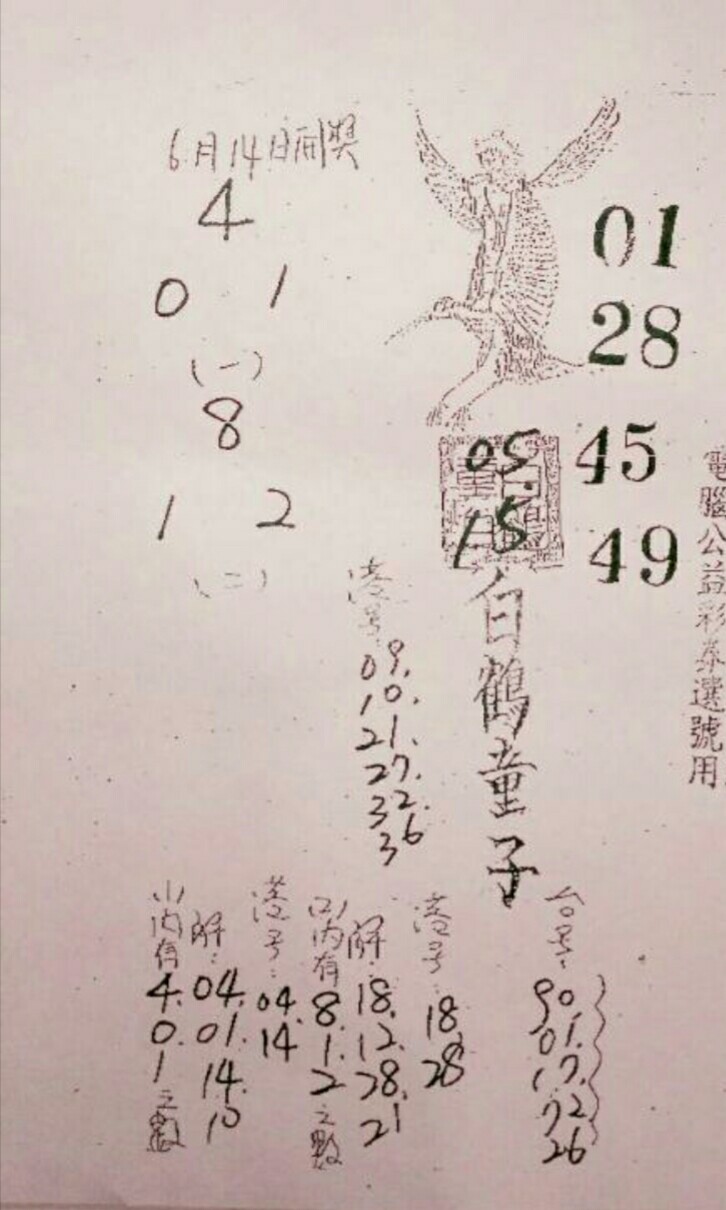 6月14日開獎
4
0 1
(一)
8
1 2
(二)
01
28
45
49
05.
15
白鶴童子
電腦公益彩券選號用
港号:
09.
10.
21.
27.
32.
36
(1)內有
4.
0.
1
之數
解:
04.
01.
14.
10
港号:
04.
14
(2)內有
8.
1.
2
之數
解:
18.
12.
28.
21
港号:
18.
28
台号:
90.
01.
17.
72.
26